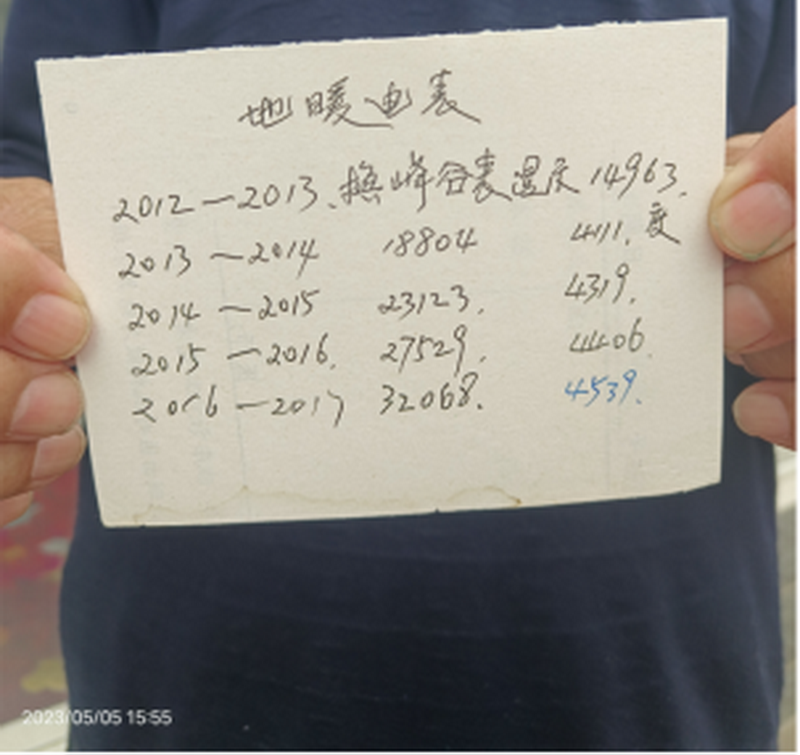 地暖电表
2012—2013.换峰谷表湿度14963.
2013—2014 18804 4111.度
2014—2015 23123. 4319.
2015—2016. 27529. 4406.
2016—2017 32068. 4539.
2023/05/05 15:55